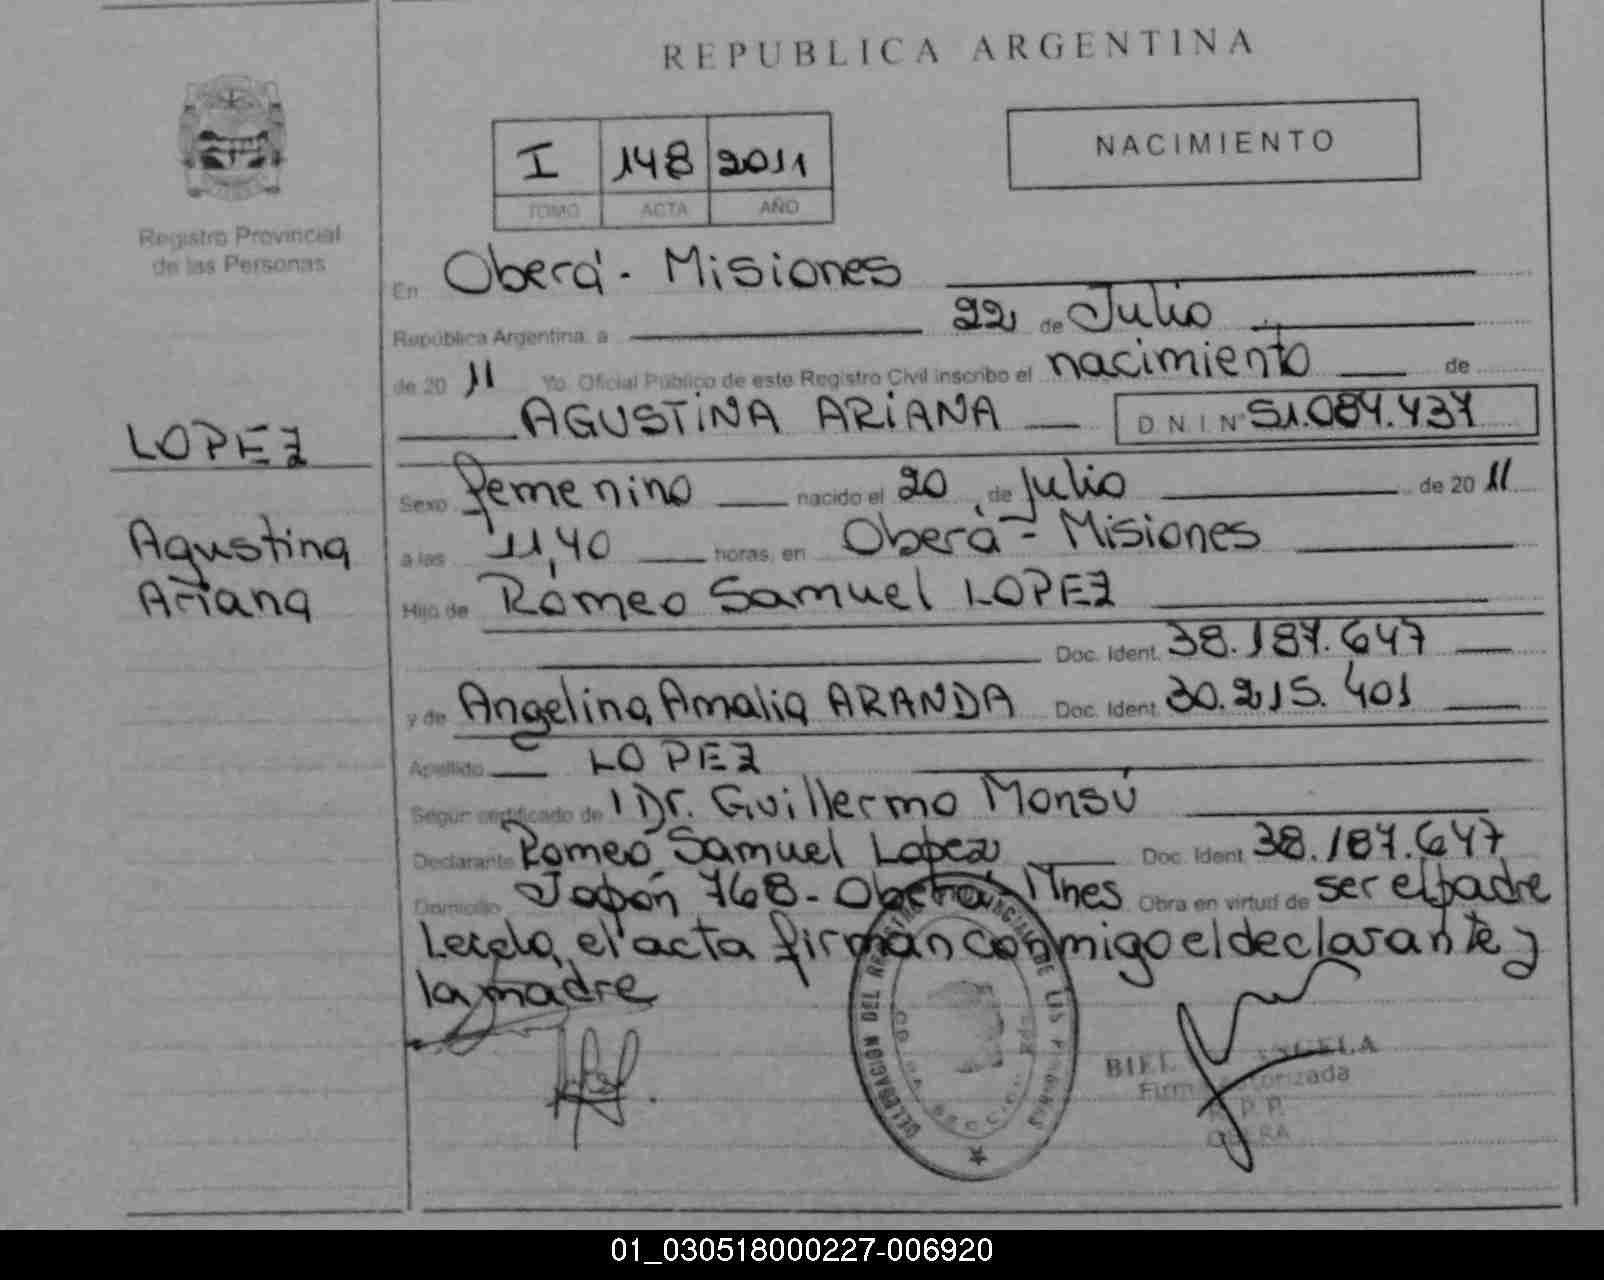 REPUBLICA ARGENTINA
I 148 2011
TOMO ACTA AÑO
NACIMIENTO
Registro Provincial
de las Personas
En Oberá - Misiones
República Argentina, a 22 de Julio
de 20 11 Yo, Oficial Público de este Registro Civil inscribo el nacimiento de
AGUSTINA ARIANA D N I Nº 51.084.437
LOPEZ
Agustina
Ariana
Sexo femenino nacido el 20 de julio de 20 11
a las 11,40 horas, en Oberá - Misiones
Hijo de Romeo Samuel LOPEZ
Doc. Ident. 38.187.647
y de Angelina Amalia ARANDA Doc. Ident. 30.215.401
Apellido LOPEZ
Según certificado de Dr. Guillermo Monsú
Declarante Romeo Samuel Lopez Doc. Ident. 38.187.647
Domicilio Japón 768 - Oberá Mnes Obra en virtud de ser el padre
Leída el acta firman conmigo el declarante y
la madre
DELEGACION DEL REGISTRO PROVINCIAL DE LAS PERSONAS
BIEL
Firma Autorizada
R. P. P.
OBERA
01_030518000227-006920